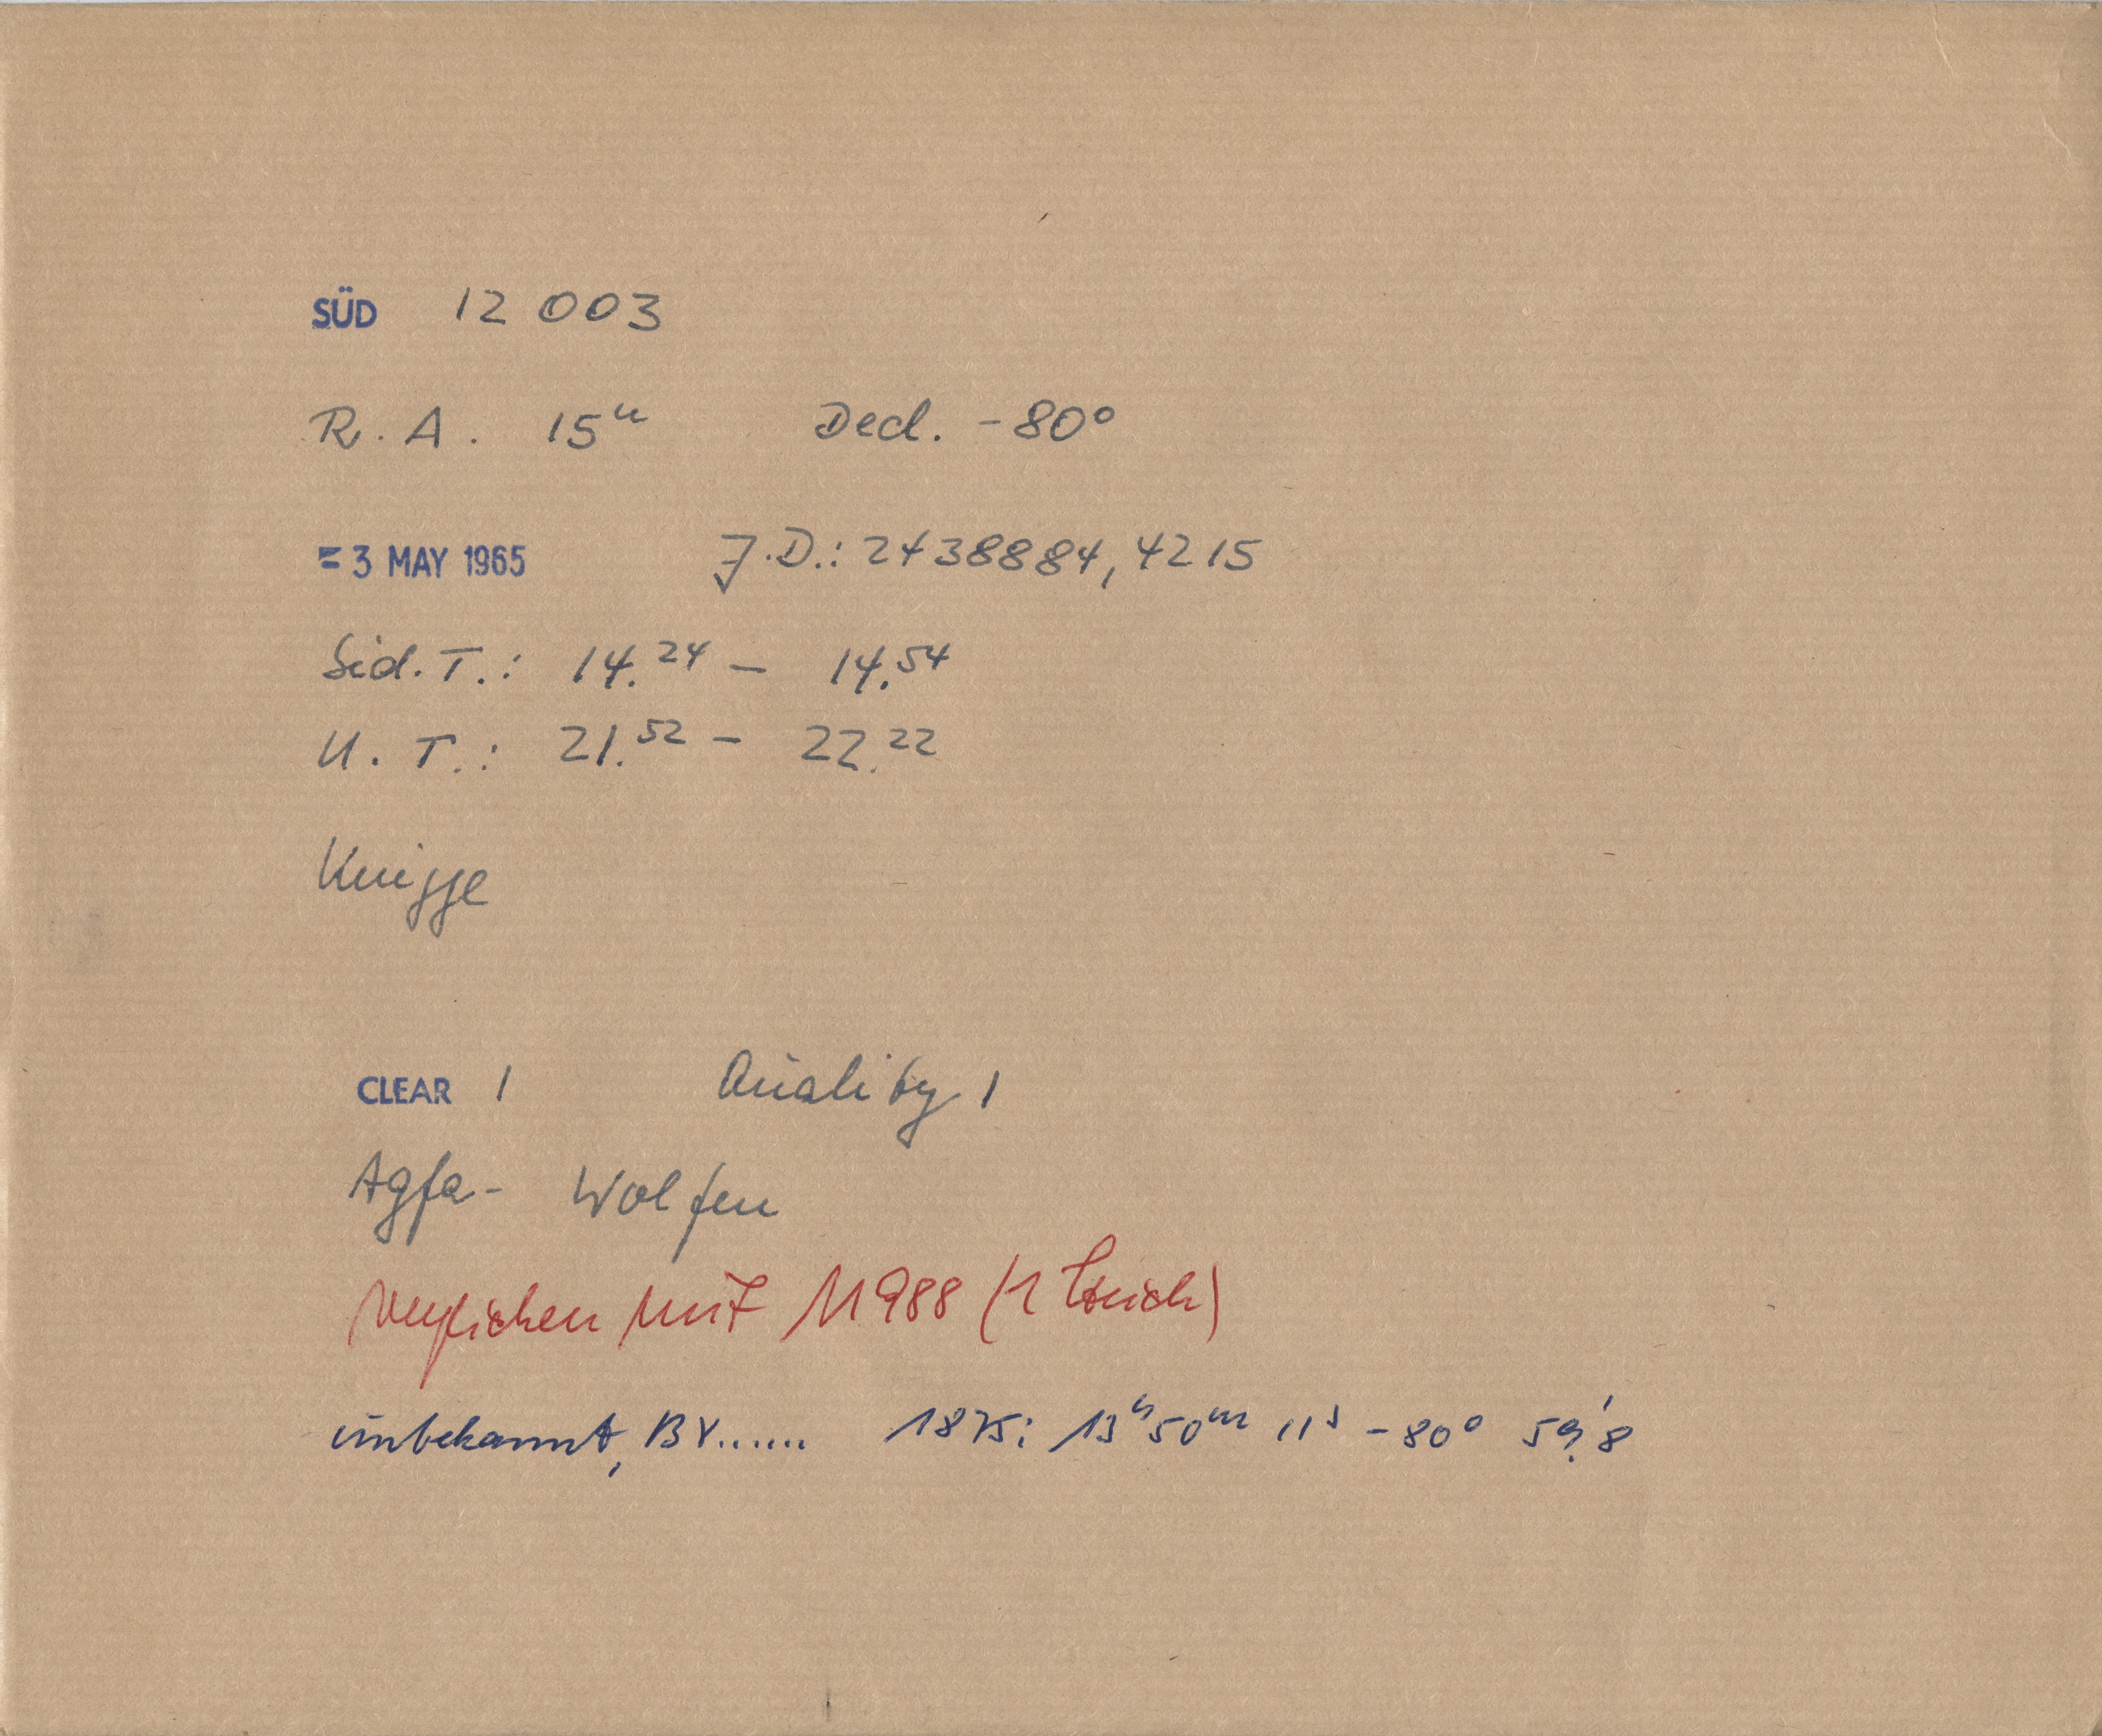 SÜD 12 003
R. A. 15ʰ Decl. -80°
= 3 MAY 1965 J.D.: 2438884,4215
Sid. T.: 14.²⁴ – 14.⁵⁴
U. T.: 21.⁵² – 22.²²
Knigge
CLEAR 1 Quality 1
Agfa- Wolfen
Verglichen mit 11988 (1 Strich)
unbekannt, BV...... 1875: 13ʰ50ᵐ 11ˢ -80° 59'.8